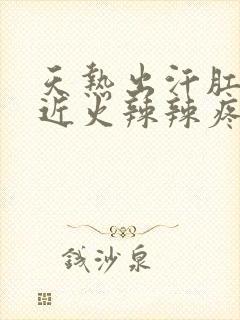 天熱出汗肛
近火辣辣疼
钱沙泉